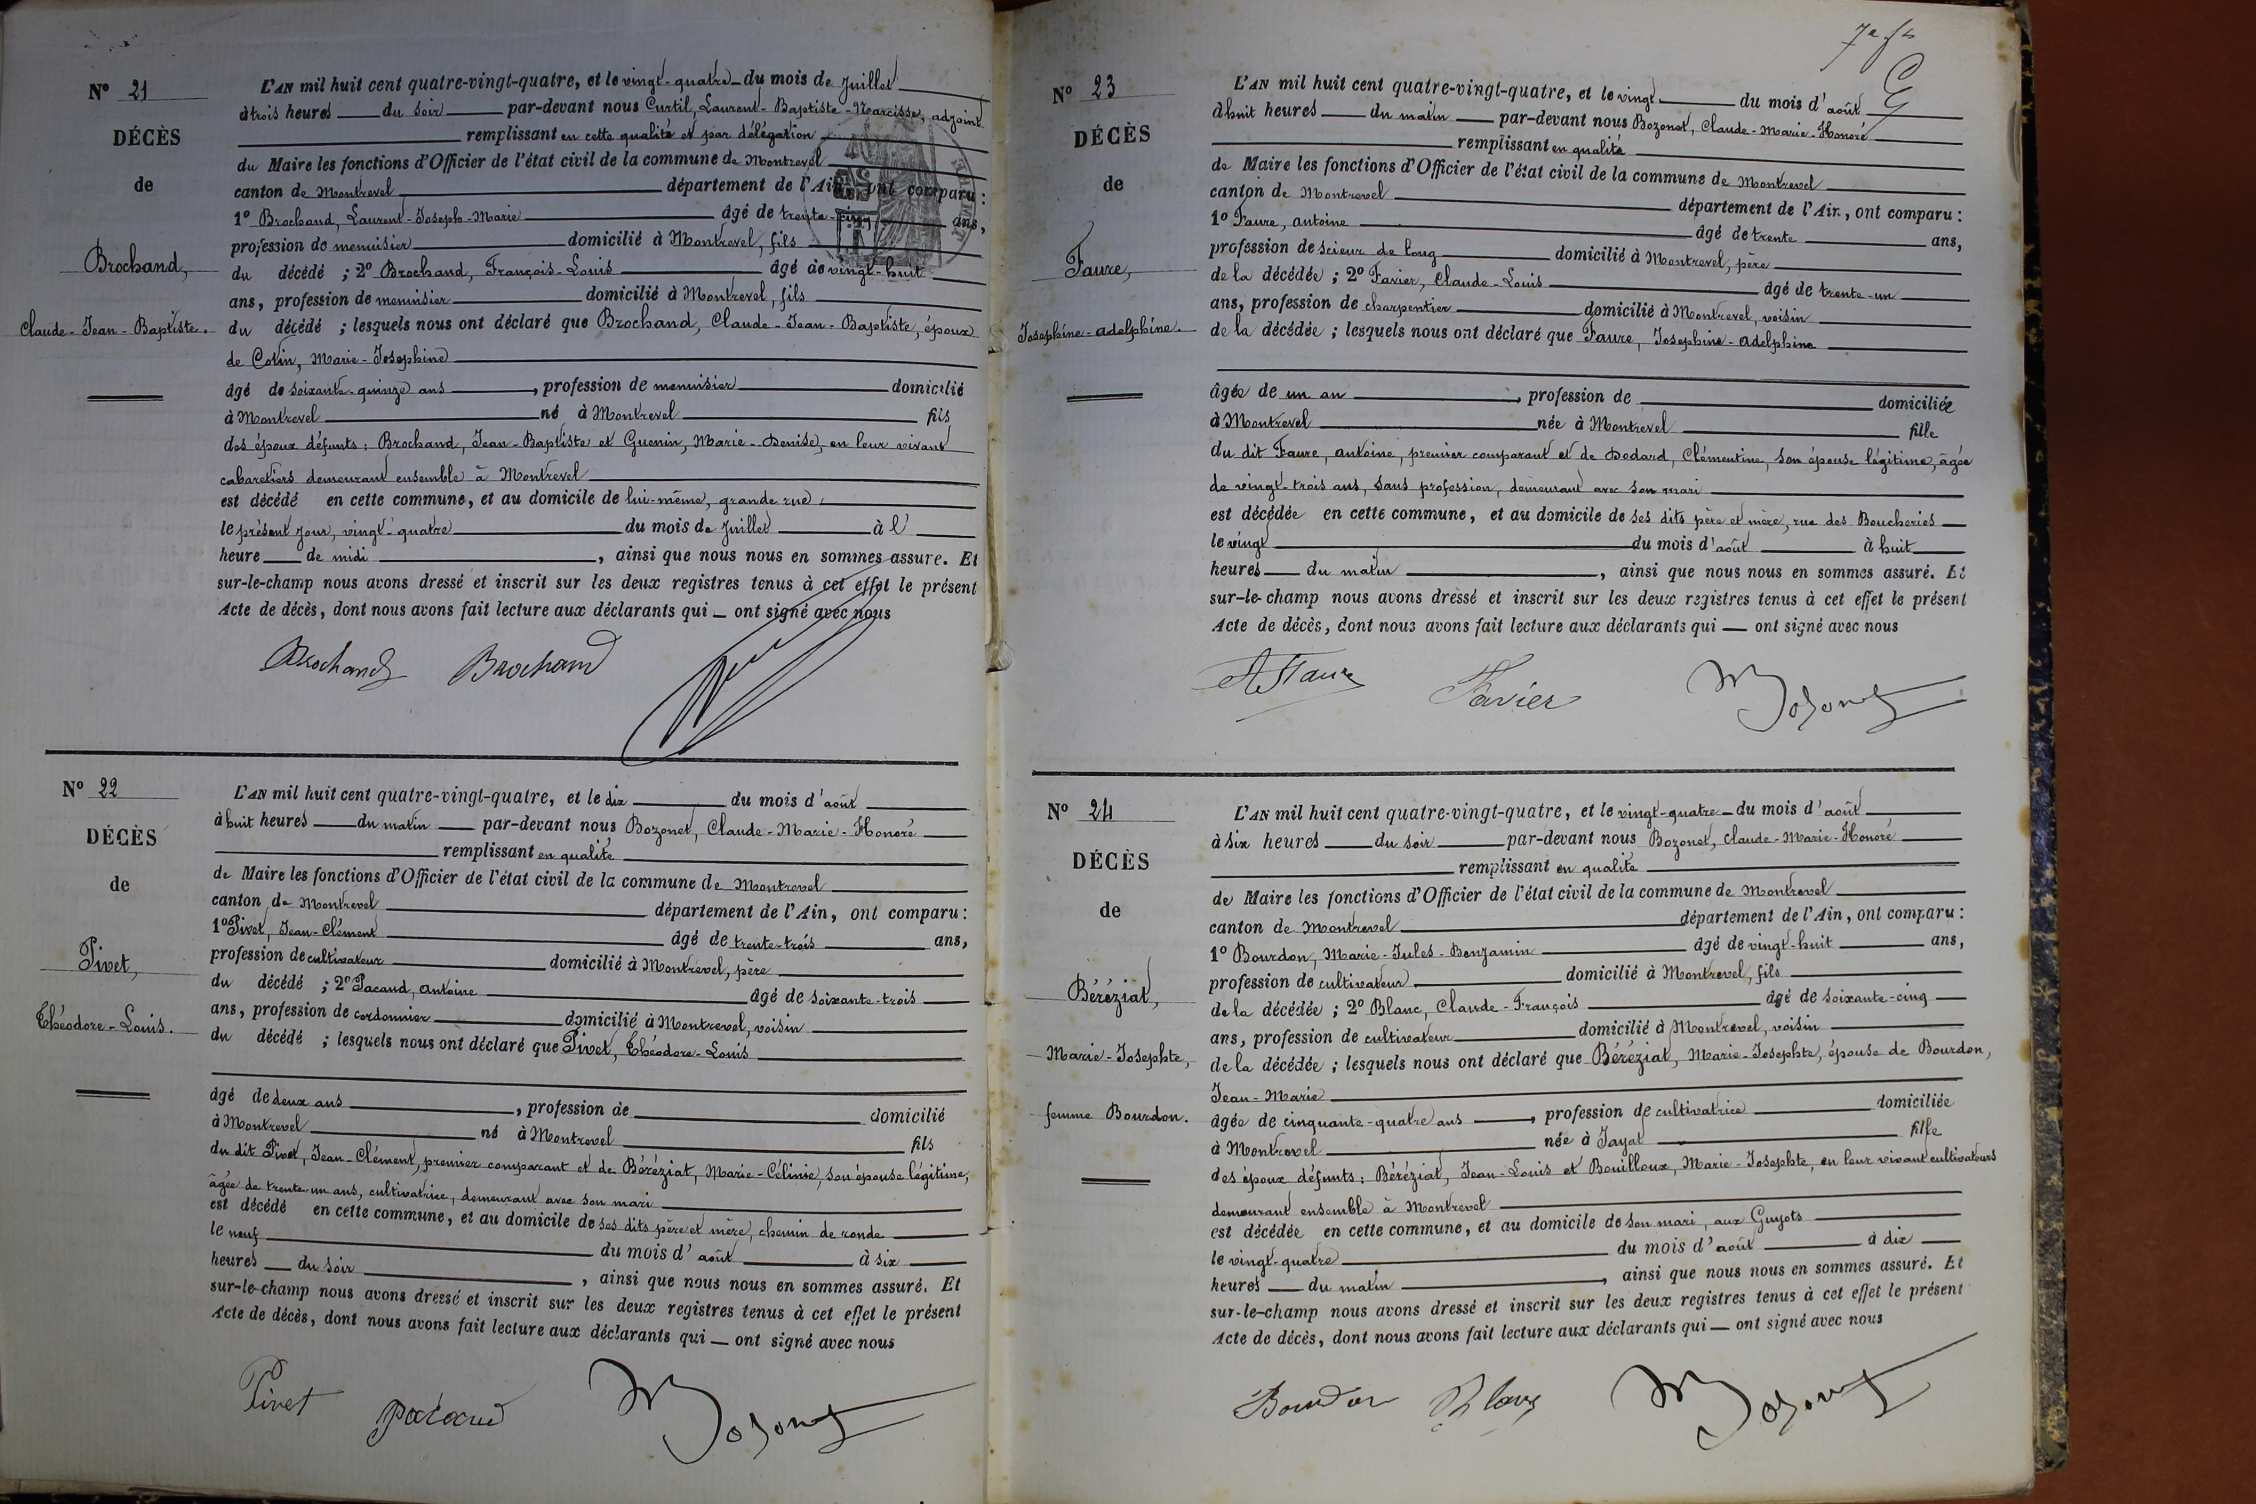 N° 21
DÉCÈS
de
Brochand,
Claude-Jean-Baptiste.
L'AN mil huit cent quatre-vingt-quatre, et le vingt-quatre du mois de Juillet
à trois heures du soir par-devant nous Curtil, Laurent-Baptiste-Narcisse, adjoint
remplissant en cette qualité et par délégation
du Maire les fonctions d'Officier de l'état civil de la commune de Montrevel
canton de Montrevel département de l'Ain, ont comparu :
1° Brochand, Laurent-Joseph-Marie âgé de trente-cinq ans,
profession de menuisier domicilié à Montrevel, fils
du décédé ; 2° Brochand, François-Louis âgé de vingt-huit
ans, profession de menuisier domicilié à Montrevel, fils
du décédé ; lesquels nous ont déclaré que Brochand, Claude-Jean-Baptiste, époux
de Cotin, Marie-Joséphine
âgé de soixante-quinze ans, profession de menuisier domicilié
à Montrevel né à Montrevel fils
des époux défunts : Brochand, Jean-Baptiste et Guenin, Marie-Denise, en leur vivant
cabaretiers demeurant ensemble à Montrevel
est décédé en cette commune, et au domicile de lui-même, grande rue,
le présent jour, vingt-quatre du mois de Juillet à l'
heure de midi, ainsi que nous nous en sommes assuré. Et
sur-le-champ nous avons dressé et inscrit sur les deux registres tenus à cet effet le présent
Acte de décès, dont nous avons fait lecture aux déclarants qui — ont signé avec nous
Brochand Brochand
N° 22
DÉCÈS
de
Pivet,
Théodore-Louis.
L'AN mil huit cent quatre-vingt-quatre, et le dix du mois d'août
à huit heures du matin par-devant nous Bozonet, Claude-Marie-Honoré
remplissant en qualité
de Maire les fonctions d'Officier de l'état civil de la commune de Montrevel
canton de Montrevel département de l'Ain, ont comparu :
1° Pivet, Jean-Clément âgé de trente-trois ans,
profession de cultivateur domicilié à Montrevel, père
du décédé ; 2° Pacaud, antoine âgé de soixante-trois
ans, profession de cordonnier domicilié à Montrevel, voisin
du décédé ; lesquels nous ont déclaré que Pivet, Théodore-Louis
âgé de deux ans, profession de domicilié
à Montrevel né à Montrevel fils
du dit Pivet, Jean-Clément, premier comparant et de Béréziat, Marie-Célinie, son épouse légitime,
âgée de trente-un ans, cultivatrice, demeurant avec son mari
est décédé en cette commune, et au domicile de ses dits père et mère, chemin de ronde
le neuf du mois d'août à six
heures du soir, ainsi que nous nous en sommes assuré. Et
sur-le-champ nous avons dressé et inscrit sur les deux registres tenus à cet effet le présent
Acte de décès, dont nous avons fait lecture aux déclarants qui — ont signé avec nous
Pivet pacaud Bozonet
7e
N° 23
DÉCÈS
de
Faure,
Josephine-adelphine.
L'AN mil huit cent quatre-vingt-quatre, et le vingt du mois d'août
à huit heures du matin par-devant nous Bozonet, Claude-Marie-Honoré
remplissant en qualité
de Maire les fonctions d'Officier de l'état civil de la commune de Montrevel
canton de Montrevel département de l'Ain, ont comparu :
1° Faure, antoine âgé de trente ans,
profession de scieur de long domicilié à Montrevel, père
de la décédée ; 2° Favier, Claude-Louis âgé de trente-un
ans, profession de charpentier domicilié à Montrevel, voisin
de la décédée ; lesquels nous ont déclaré que Faure, Josephine-adelphine
âgée de un an, profession de domiciliée
à Montrevel née à Montrevel fille
du dit Faure, antoine, premier comparant et de Dodard, Clémentine, son épouse légitime, âgée
de vingt-trois ans, sans profession, demeurant avec son mari
est décédée en cette commune, et au domicile de ses dits père et mère, rue des Boucheries
le vingt du mois d'août à huit
heures du matin, ainsi que nous nous en sommes assuré. Et
sur-le-champ nous avons dressé et inscrit sur les deux registres tenus à cet effet le présent
Acte de décès, dont nous avons fait lecture aux déclarants qui — ont signé avec nous
A Faure Favier Bozonet
N° 24
DÉCÈS
de
Béréziat,
Marie-Josephte,
femme Bourdon.
L'AN mil huit cent quatre-vingt-quatre, et le vingt-quatre du mois d'août
à six heures du soir par-devant nous Bozonet, Claude-Marie-Honoré
remplissant en qualité
de Maire les fonctions d'Officier de l'état civil de la commune de Montrevel
canton de Montrevel département de l'Ain, ont comparu :
1° Bourdon, Marie-Jules-Benjamin âgé de vingt-huit ans,
profession de cultivateur domicilié à Montrevel, fils
de la décédée ; 2° Blanc, Claude-François âgé de soixante-cinq
ans, profession de cultivateur domicilié à Montrevel, voisin
de la décédée ; lesquels nous ont déclaré que Béréziat, Marie-Josephte, épouse de Bourdon,
Jean-Marie
âgée de cinquante-quatre ans, profession de cultivatrice domiciliée
à Montrevel née à Jayat fille
des époux défunts : Béréziat, Jean-Louis et Bouilloux, Marie-Josephte, en leur vivant cultivateurs
demeurant ensemble à Montrevel
est décédée en cette commune, et au domicile de son mari, aux Guyots
le vingt-quatre du mois d'août à dix
heures du matin, ainsi que nous nous en sommes assuré. Et
sur-le-champ nous avons dressé et inscrit sur les deux registres tenus à cet effet le présent
Acte de décès, dont nous avons fait lecture aux déclarants qui — ont signé avec nous
Bourdon Blanc Bozonet